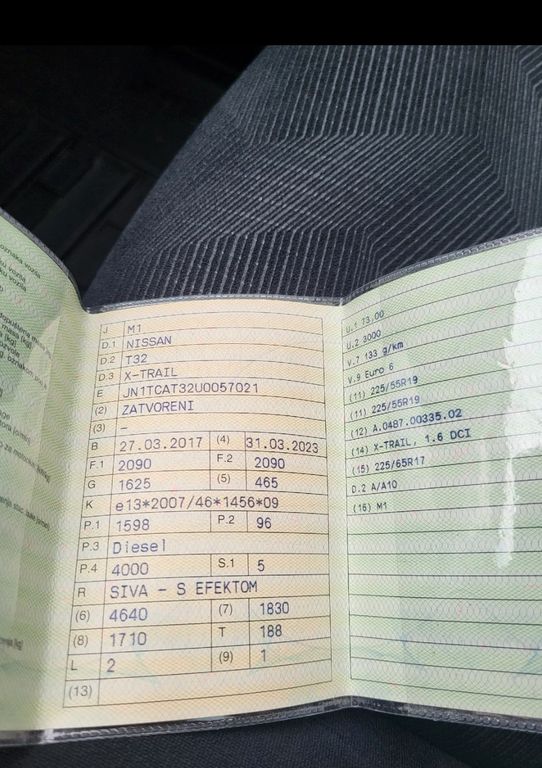 J M1
D.1 NISSAN
D.2 T32
D.3 X-TRAIL
E JN1TCAT32U0057021
(2) ZATVORENI
(3) –
B 27.03.2017 (4) 31.03.2023
F.1 2090 F.2 2090
G 1625 (5) 465
K e13*2007/46*1456*09
P.1 1598 P.2 96
P.3 Diesel
P.4 4000 S.1 5
R SIVA – S EFEKTOM
(6) 4640 (7) 1830
(8) 1710 T 188
L 2 (9) 1
(13)
U.1 73,00
U.2 3000
V.7 133 g/km
V.9 Euro 6
(11) 225/55R19
(11) 225/55R19
(12) A.0487.00335.02
(14) X-TRAIL, 1.6 DCI
(15) 225/65R17
D.2 A/A10
(16) M1